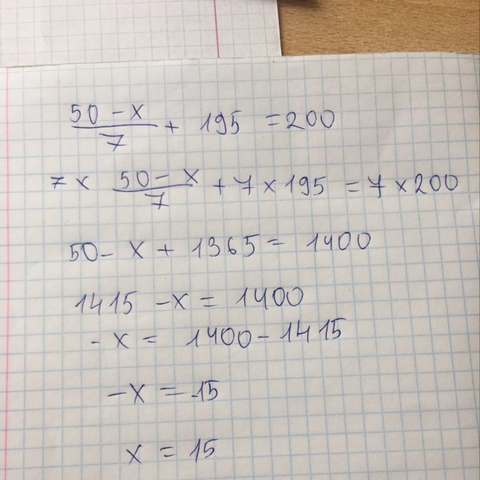 50 - x / 7 + 195 = 200
7 × 50 - x / 7 + 7 × 195 = 7 × 200
50 - x + 1365 = 1400
1415 - x = 1400
- x = 1400 - 1415
- x = -15
x = 15